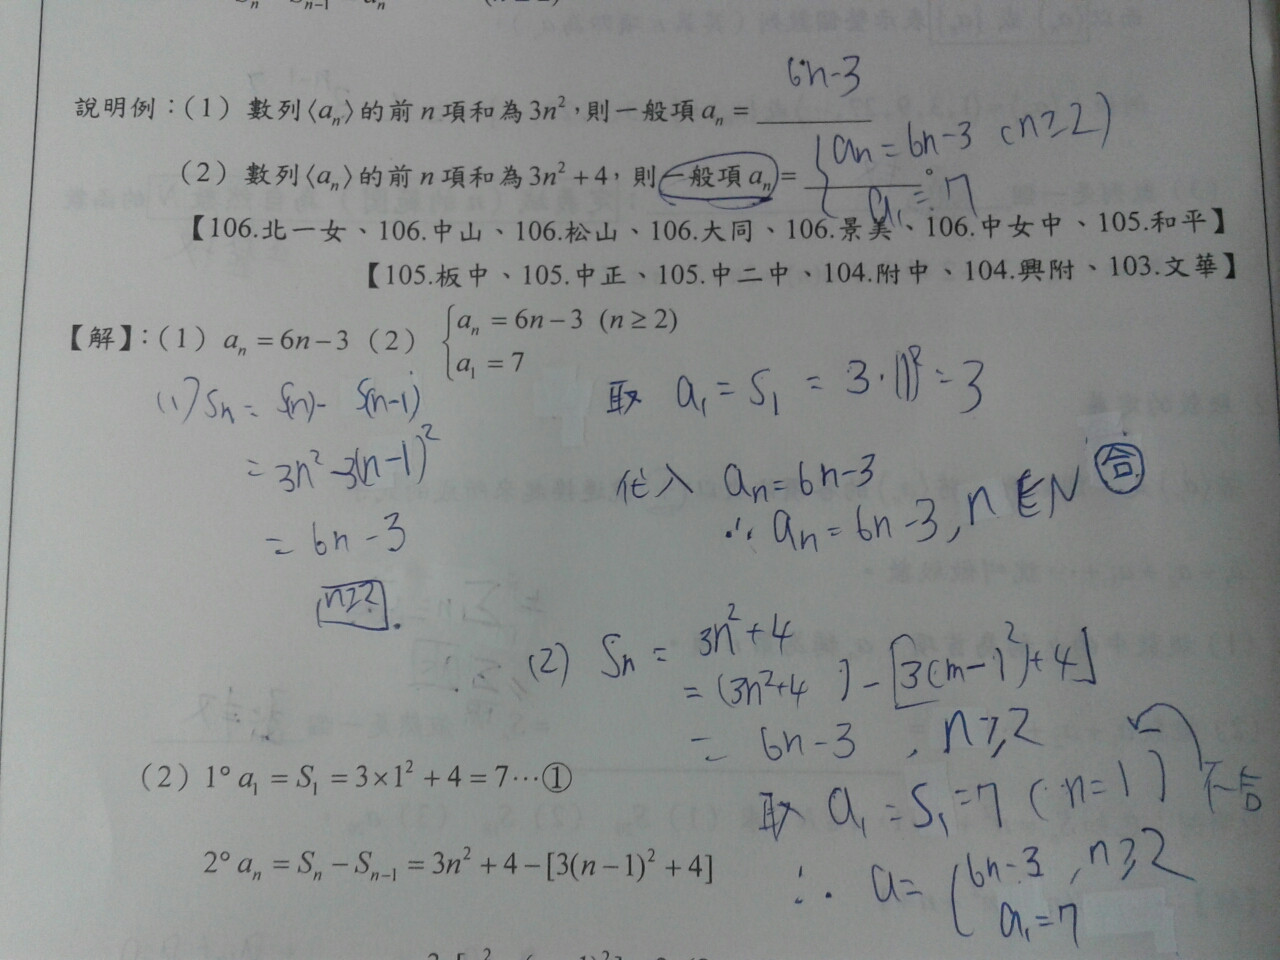 6n-3
說明例：(1) 數列⟨aₙ⟩的前 n 項和為 3n²，則一般項 aₙ = ______
(2) 數列⟨aₙ⟩的前 n 項和為 3n² + 4，則一般項 aₙ = { aₙ = 6n-3 (n≥2)
a₁ = 7
【106.北一女、106.中山、106.松山、106.大同、106.景美、106.中女中、105.和平】
【105.板中、105.中正、105.中二中、104.附中、104.興附、103.文華】
【解】：(1) aₙ = 6n-3 (2) { aₙ = 6n-3 (n ≥ 2)
a₁ = 7
(1) Sₙ = S(n) - S(n-1)
= 3n² - 3(n-1)²
= 6n - 3
n≥2.
取 a₁ = S₁ = 3·(1)² = 3
代入 aₙ = 6n-3 合
∴ aₙ = 6n-3, n∈N
(2) Sₙ = 3n²+4
= (3n²+4) - [3(n-1)²+4]
= 6n-3, n≥2
取 a₁ = S₁ = 7 (n=1) 不合
∴ a = { 6n-3, n≥2
a₁=7
(2) 1° a₁ = S₁ = 3×1² + 4 = 7⋯①
2° aₙ = Sₙ − Sₙ₋₁ = 3n² + 4 − [3(n−1)² + 4]